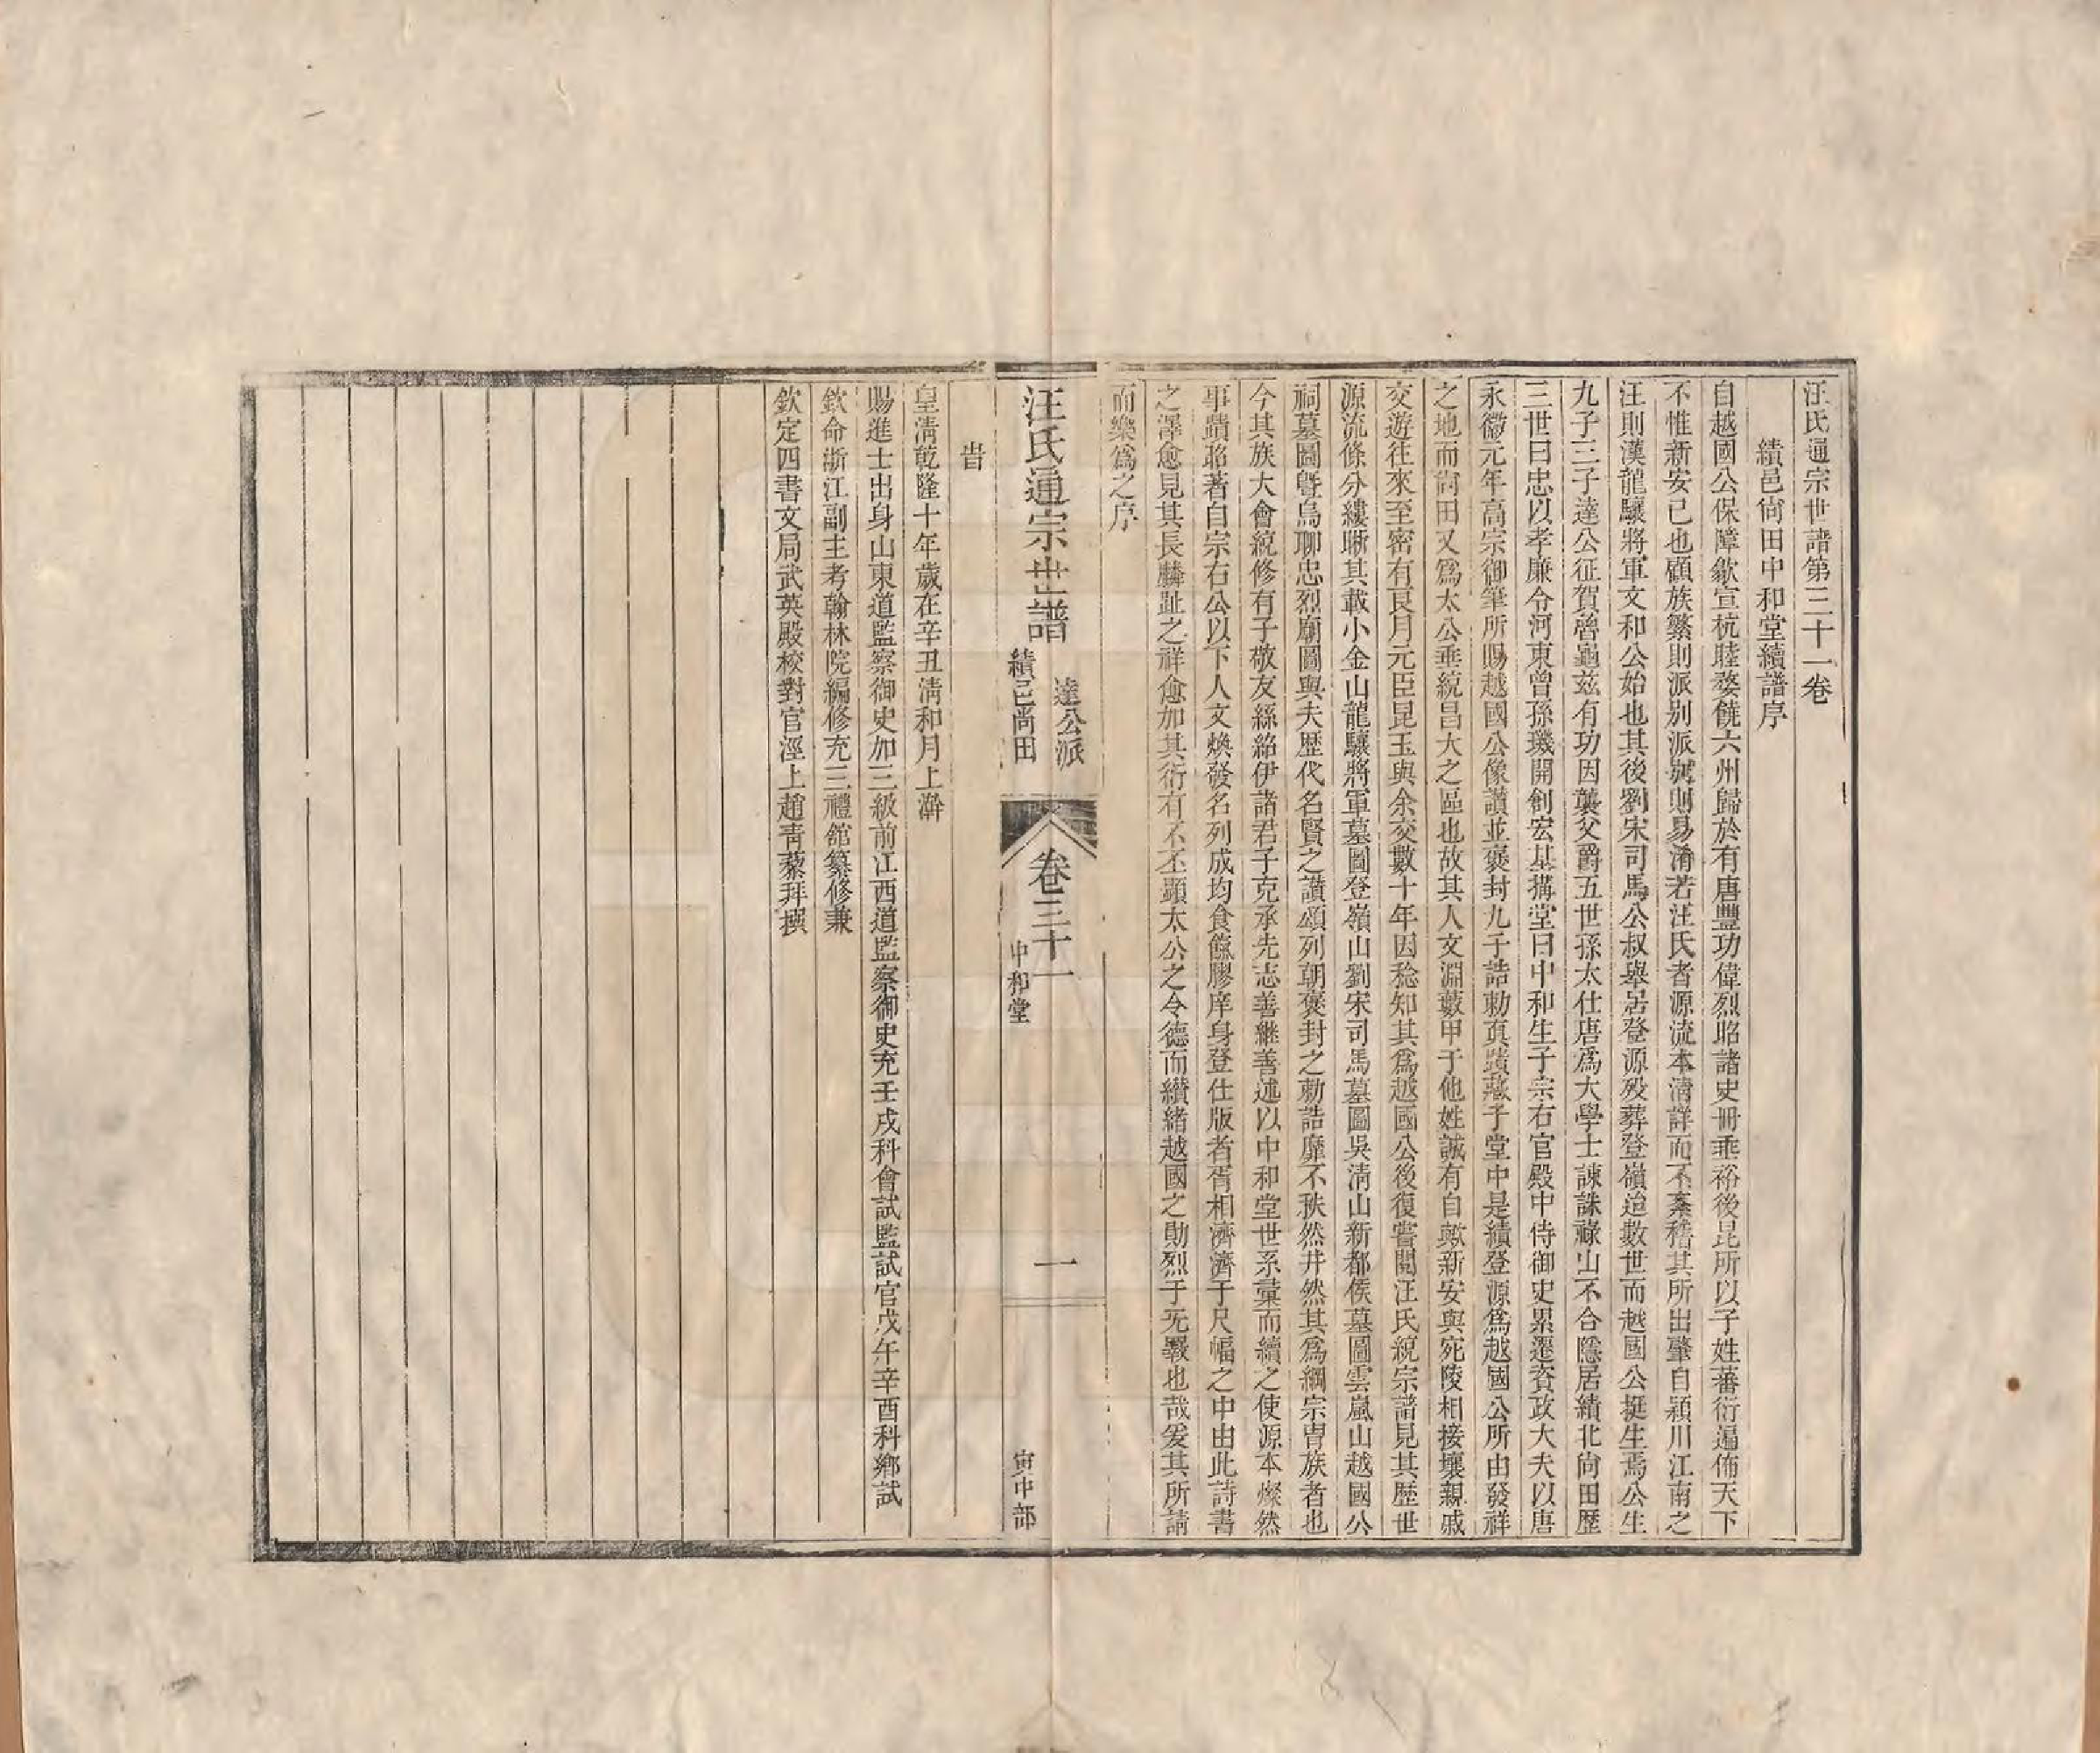 汪氏通宗世譜第三十一卷
績邑尚田中和堂續譜序
自越國公保障歙宣杭睦婺饒六州歸於有唐豐功偉烈昭諸史冊垂裕後昆所以子姓蕃衍遍佈天下
不惟新安已也顧族繁則派別派別則易淆若汪氏者源流本清詳而不紊稽其所出肇自穎川江南之
汪則漢龍驤將軍文和公始也其後劉宋司馬公叔舉居登源歿葬登嶺迨數世而越國公挺生焉公生
九子三子達公征賀魯龜兹有功因襲父爵五世孫太仕唐爲大學士諫誅祿山不合隱居績北尚田歷
三世曰忠以孝廉令河東曾孫璣開創宏基搆堂曰中和生子宗右官殿中侍御史累遷資政大夫以唐
永徽元年高宗御筆所賜越國公像讃並褒封九子誥勅真蹟藏于堂中是績登源爲越國公所由發祥
之地而尚田又爲太公垂統昌大之區也故其人文淵藪甲于他姓誠有自歟新安與宛陵相接壤親戚
交遊往來至密有艮月元臣昆玉與余交數十年因稔知其爲越國公後復嘗閱汪氏統宗譜見其歷世
源流條分縷晰其載小金山龍驤將軍墓圖登嶺山劉宋司馬墓圖吳清山新都侯墓圖雲嵐山越國公
祠墓圖曁烏聊忠烈廟圖與夫歷代名賢之讃頌列朝褒封之勅誥靡不秩然井然其爲綱宗胄族者也
今其族大會統修有子敬友絲紹伊諸君子克承先志善繼善述以中和堂世系彙而續之使源本燦然
事蹟昭著自宗右公以下人文煥發名列成均食餼膠庠身登仕版者胥相濟濟于尺幅之中由此詩書
之澤愈見其長麟趾之祥愈加其衍有不丕顯太公之令德而纘緒越國之勛烈于无斁也哉爰其所請
而樂爲之序
汪氏通宗世譜 達公派 績邑尚田 卷三十一 中和堂 一 寅中部
旹
皇清乾隆十年歲在辛丑清和月上澣
賜進士出身山東道監察御史加三級前江西道監察御史充壬戌科會試監試官戊午辛酉科鄉試
欽命浙江副主考翰林院編修充三禮舘纂修兼
欽定四書文局武英殿校對官涇上趙青藜拜撰